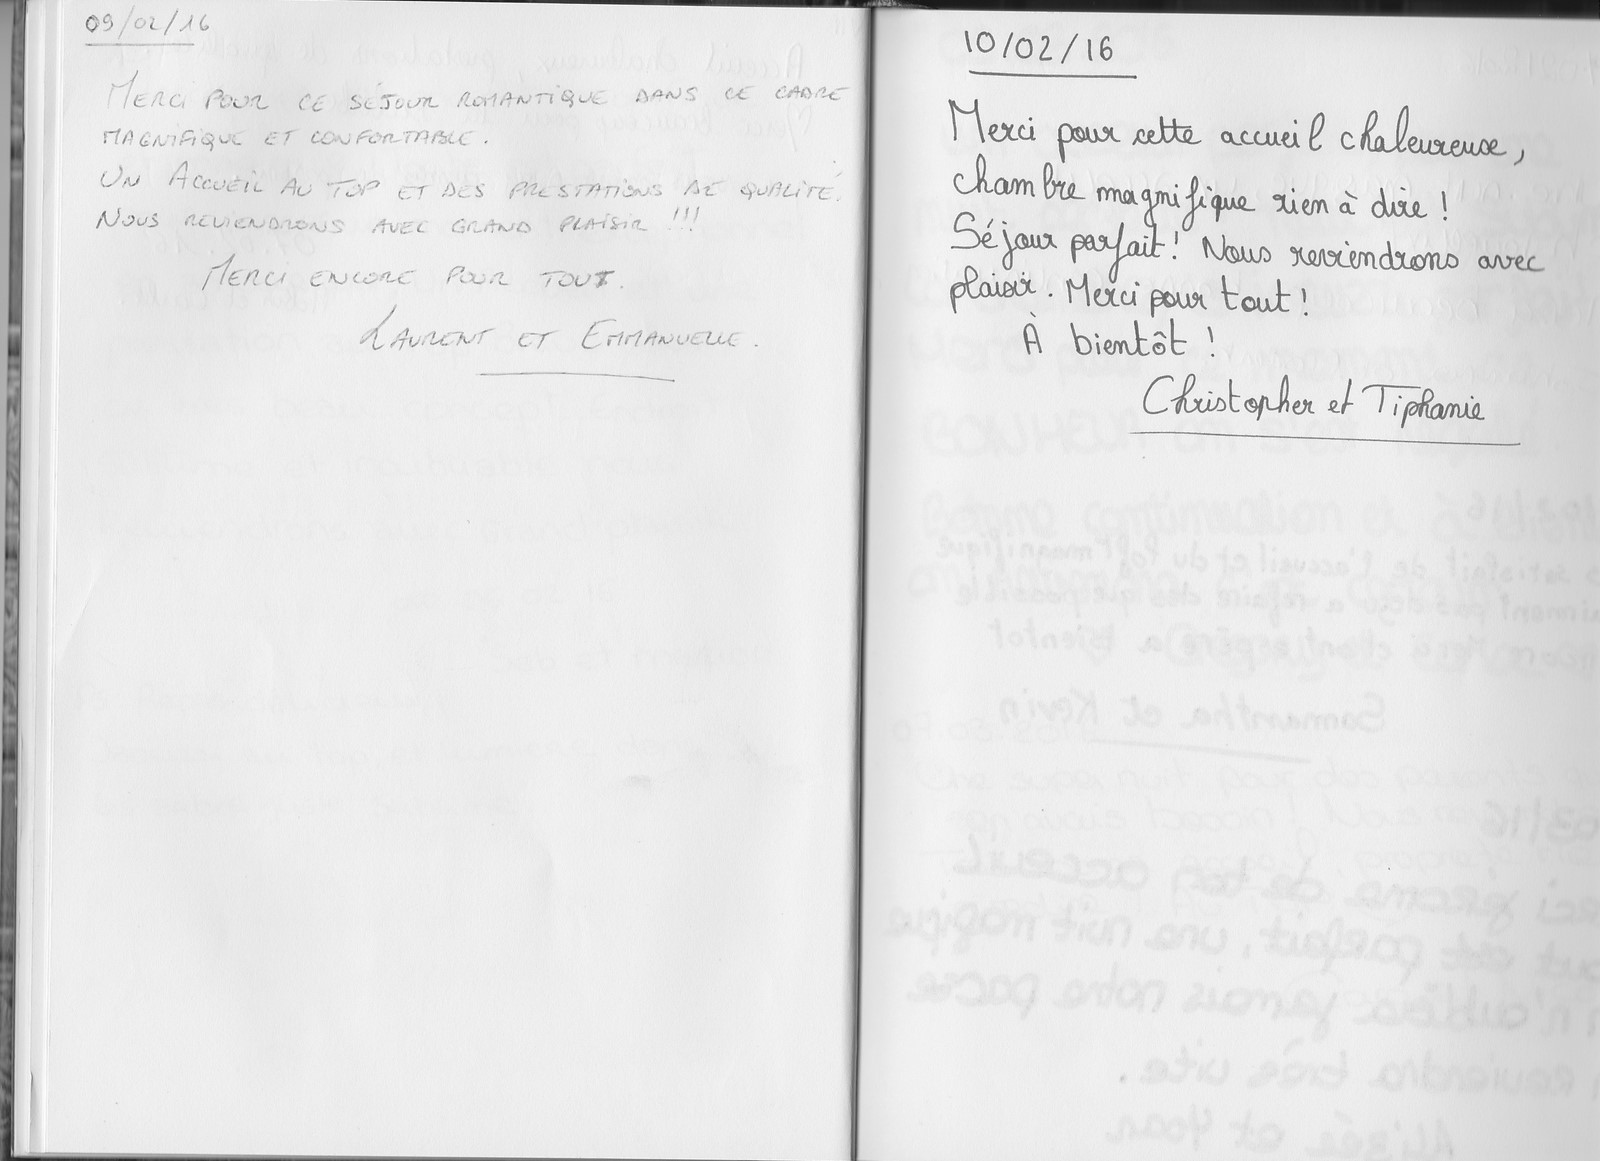 09/02/16
MERCI POUR CE SÉJOUR ROMANTIQUE DANS CE CADRE
MAGNIFIQUE ET CONFORTABLE.
UN ACCUEIL AU TOP ET DES PRESTATIONS DE QUALITÉ.
NOUS REVIENDRONS AVEC GRAND PLAISIR !!!
MERCI ENCORE POUR TOUT.
LAURENT ET EMMANUELLE.
10/02/16
Merci pour cette accueil chaleureuse,
chambre magnifique rien à dire !
Séjour parfait ! Nous reviendrons avec
plaisir. Merci pour tout !
À bientôt !
Christopher et Tiphanie